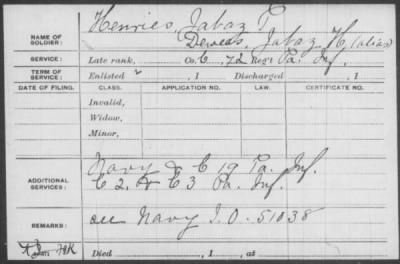 Henries, Jabaz P.
NAME OF SOLDIER: Dewees, Jabaz H. (alias)
SERVICE: Late rank, Co. C, 72 Reg't Pa. Inf.
TERM OF SERVICE: Enlisted , 1 Discharged , 1
DATE OF FILING. CLASS. APPLICATION NO. LAW. CERTIFICATE NO.
Invalid,
Widow,
Minor,
ADDITIONAL SERVICES: Navy & C 19 Pa. Inf.
C 2, & C 3 Pa. Inf.
REMARKS: See Navy I. O. 51038
Died , 1 , at